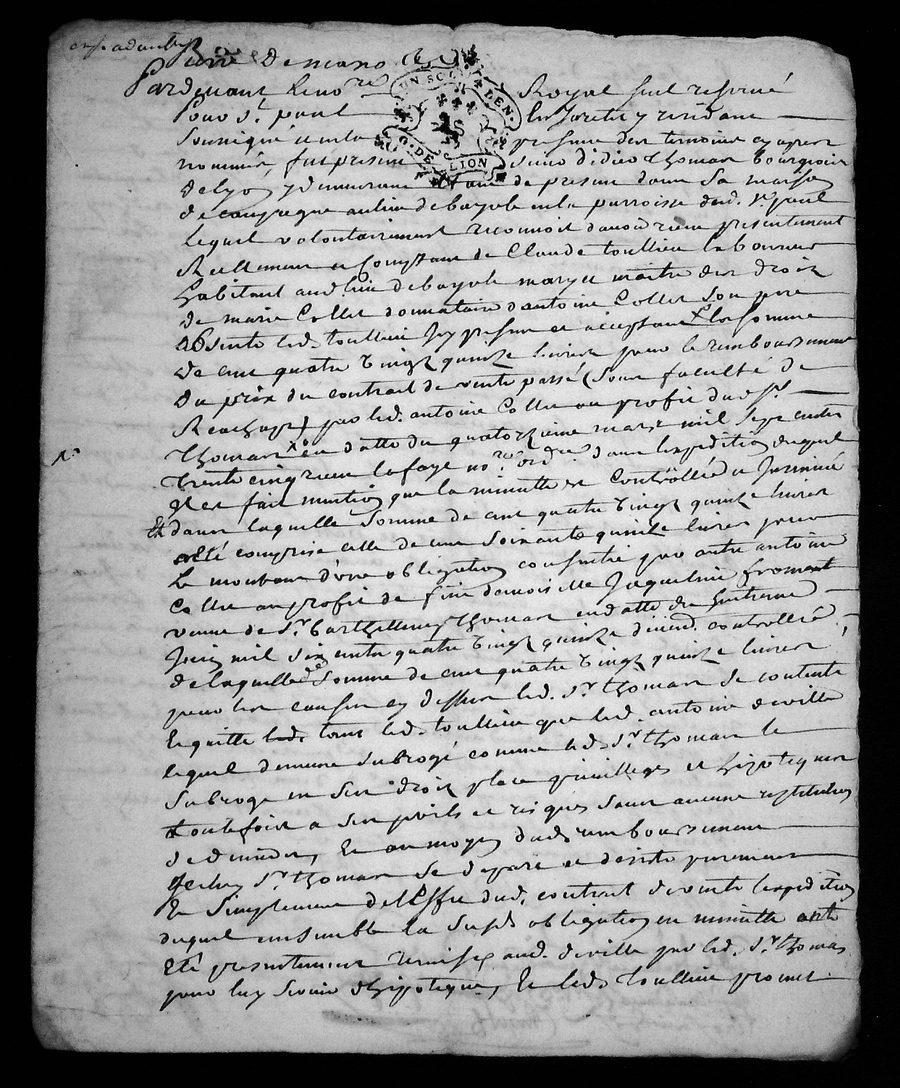 Pardevant le no.re Royal
Pour S.t paul en Jarest y residant
Soussigné et en la presence des temoins cy apres
nommés, fut present Sieur didier Thomas Bourgeois
de lyon y demeurant de present dans Sa maison
de campagne au lieu de bayole en la parroisse dud. S.t paul
lequel volontairement reconnoit d'avoir receu presentement
Reellement et Comptant de Claude toullieu laboureur
habitant aud. lieu de bayole mary et maitre des droits
de marie Collet donnataire d'antoine Collet Son pere
absente led. toullieu Icy present et acceptant la Somme
de cent quatre vingt quinze livres pour le remboursement
du prix du contrait de vente passé Sous faculté de
Reachapt par led. antoine Collet au profit dud. S.r
Thomas en datte du quatorzieme mars mil Sept cents
trente cinq receu lafaye no.re dans l'expedition duquel
Il est fait mention que la minutte est Controllée
Et dans laquelle Somme de cent quatre vingt quinze livres
été comprise celle de cent Soixante quinze livres pour
le montant d'une obligation consentie par autre antoine
Collet au profit de feue damoiselle Jacqueline fromant
veuve de S.r Barthellemy Thomas en datte du huitieme
Juin mil Six cents quatre vingt quinze controllée
de laquelle Somme de cent quatre vingt quinze livres
pour les causes cy dessus led. S.r thomas Se contente
En quitte tant led. toullieu que led. antoine deville
lequel demeure Subrogé comme led. S.r thomas le
Subroge en Ses droits place privilleges et hipoteques
toutefois a Ses perils et risques Sans aucune restitution
de deniers, Et au moyen dud. remboursement
S.r thomas Se depart et desiste purement
Et Simplement de l'Effet dud. contrait de vente l'expedition
duquel ensemble la Susd. obligation en minutte ont
Eté presentement remises aud. deville par led. S.r thomas
pour luy Servir d'hipoteque, Et led. toullieu promet
UN SOL 4 DEN.
G. DE LION